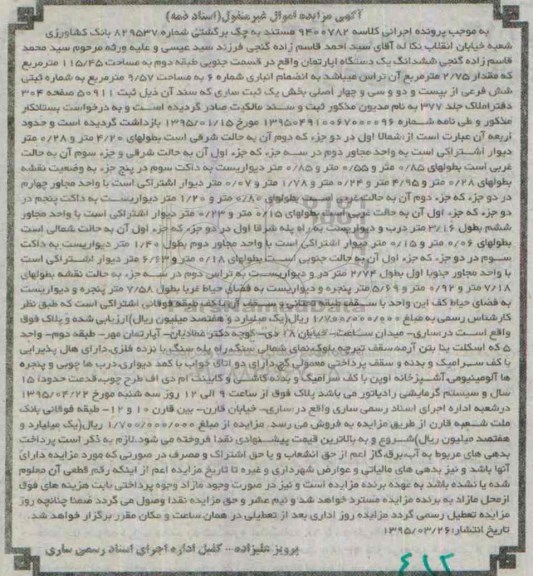 آگهی مزایده اموال غیرمنقول(اسناد ذمه)
به موجب پرونده اجرائی کلاسه ۹۴۰۰۷۸۲ مستند به چک برگشتی شماره ۸۲۹۵۳۷ بانک کشاورزی
شعبه خیابان انقلاب نکا له آقای سید احمد قاسم زاده گنجی فرزند سید عیسی و علیه ورثه مرحوم سید محمد
قاسم زاده گنجی ششدانگ یک دستگاه آپارتمان واقع در قسمت جنوبی طبقه دوم به مساحت ۱۱۵/۴۵ مترمربع
که مقدار ۲/۷۵ مترمربع آن تراس میباشد به انضمام انباری شماره ۶ به مساحت ۹/۵۷ مترمربع به شماره ثبتی
شش فرعی از بیست و دو و سی و چهار اصلی بخش یک ثبت ساری که سند آن ذیل ثبت ۵۰۹۱۱ صفحه ۳۰۴
دفتراملاک جلد ۳۷۷ به نام مدیون مذکور ثبت و سند مالکیت صادر گردیده است و به درخواست بستانکار
مذکور و طی نامه شماره ۱۳۹۵۰۴۹۱۰۰۶۷۰۰۰۰۹۶ مورخ ۱۳۹۵/۰۱/۱۵ بازداشت گردیده است و حدود
اربعه آن عبارت است از:شمالا اول در دو جزء که دوم آن به حالت شرقی است بطولهای ۴/۲۰ متر و ۰/۲۸ متر
دیوار اشتراکی است به واحد مجاور دوم در سه جزء که جزء اول آن به حالت شرقی و جزء سوم آن به حالت
غربی است بطولهای ۰/۸۵ متر و ۰/۵۵ متر و ۰/۸۵ متر دیواریست به داکت سوم در پنج جزء به وضعیت نقشه
بطولهای ۰/۲۸ متر و ۴/۹۵ متر و ۰/۲۴ متر و ۱/۷۸ متر و ۰/۰۷ متر دیوار اشتراکی است با واحد مجاور چهارم
در دو جزء که جزء دوم آن به حالت غربی است بطولهای ۰/۸۰ متر و ۱/۲۰ متر دیواریست به داکت پنجم در
دو جزء که جزء اول آن به حالت غربی است بطولهای ۰/۱۵ متر و ۰/۲۳ متر دیوار اشتراکی است با واحد مجاور
ششم بطول ۳/۱۶ متر درب و دیواریست به راه پله شرقا اول در دو جزء که جزء اول آن به حالت شمالی است
بطولهای ۰/۰۶ متر و ۰/۱۵ متر دیوار اشتراکی است با واحد مجاور دوم بطول ۱/۴۰ متر دیواریست به داکت
سوم در دو جزء که جزء اول آن به حالت جنوبی است بطولهای ۰/۱۸ متر و ۶/۶۳ متر دیوار اشتراکی است
با واحد مجاور جنوبا اول بطول ۲/۷۴ متر در و دیواریست به تراس دوم در سه جزء به حالت نقشه بطولهای
۷/۱۸ متر و ۰/۹۲ متر و ۵/۶۹ متر پنجره و دیواریست به فضای حیاط غربا بطول ۷/۵۸ متر پنجره و دیواریست
به فضای حیاط کف این واحد با سقف طبقه تحتانی و سقف آن با کف طبقه فوقانی اشتراکی است که طبق نظر
کارشناس رسمی به مبلغ ۱/۷۰۰/۰۰۰/۰۰۰ ریال(یک میلیارد و هفتصد میلیون ریال)ارزیابی شده و پلاک فوق
واقع است در ساری- میدان ساعت- خیابان ۱۸ دی-کوچه دکتر عمادیان- آپارتمان مهر- طبقه دوم- واحد
۵ که اسکلت بنا بتن آرمه،سقف تیرچه بلوک،نمای شمالی سنگ،راه پله سنگ با نرده فلزی،دارای هال پذیرایی
با کف سرامیک و بدنه و سقف پرداختی معمولی گچ،دارای دو اتاق خواب با کمد دیواری،درب ها چوبی و پنجره
ها آلومینیومی،آشپزخانه اوپن با کف سرامیک و بدنه کاشی و کابینت ام دی اف طرح چوب،قدمت حدودا ۱۵
سال و سیستم گرمایشی رادیاتور می باشد پلاک فوق از ساعت ۹ الی ۱۲ روز سه شنبه مورخ ۱۳۹۵/۰۴/۲۲
درشعبه اداره اجرای اسناد رسمی ساری واقع در ساری- خیابان قارن- بین قارن ۱۰ و ۱۲- طبقه فوقانی بانک
ملت شعبه قارن از طریق مزایده به فروش می رسد. مزایده از مبلغ ۱/۷۰۰/۰۰۰/۰۰۰ ریال(یک میلیارد و
هفتصد میلیون ریال)شروع و به بالاترین قیمت پیشنهادی نقدا فروخته می شود.لازم به ذکر است پرداخت
بدهی های مربوط به آب،برق،گاز اعم از حق انشعاب و یا حق اشتراک و مصرف در صورتی که مورد مزایده دارای
آنها باشد و نیز بدهی های مالیاتی و عوارض شهرداری و غیره تا تاریخ مزایده اعم از اینکه رقم قطعی آن معلوم
شده یا نشده باشد به عهده برنده مزایده است و نیز در صورت وجود مازاد وجوه پرداختی بابت هزینه های فوق
ازمحل مازاد به برنده مزایده مسترد خواهد شد و نیم عشر و حق مزایده نقدا وصول می گردد ضمنا چنانچه روز
مزایده تعطیل رسمی گردد مزایده روز اداری بعد از تعطیلی در همان ساعت و مکان مقرر برگزار خواهد شد.
تاریخ انتشار:۱۳۹۵/۰۳/۲۶
پرویز علیزاده - کفیل اداره اجرای اسناد رسمی ساری
۶۱۲